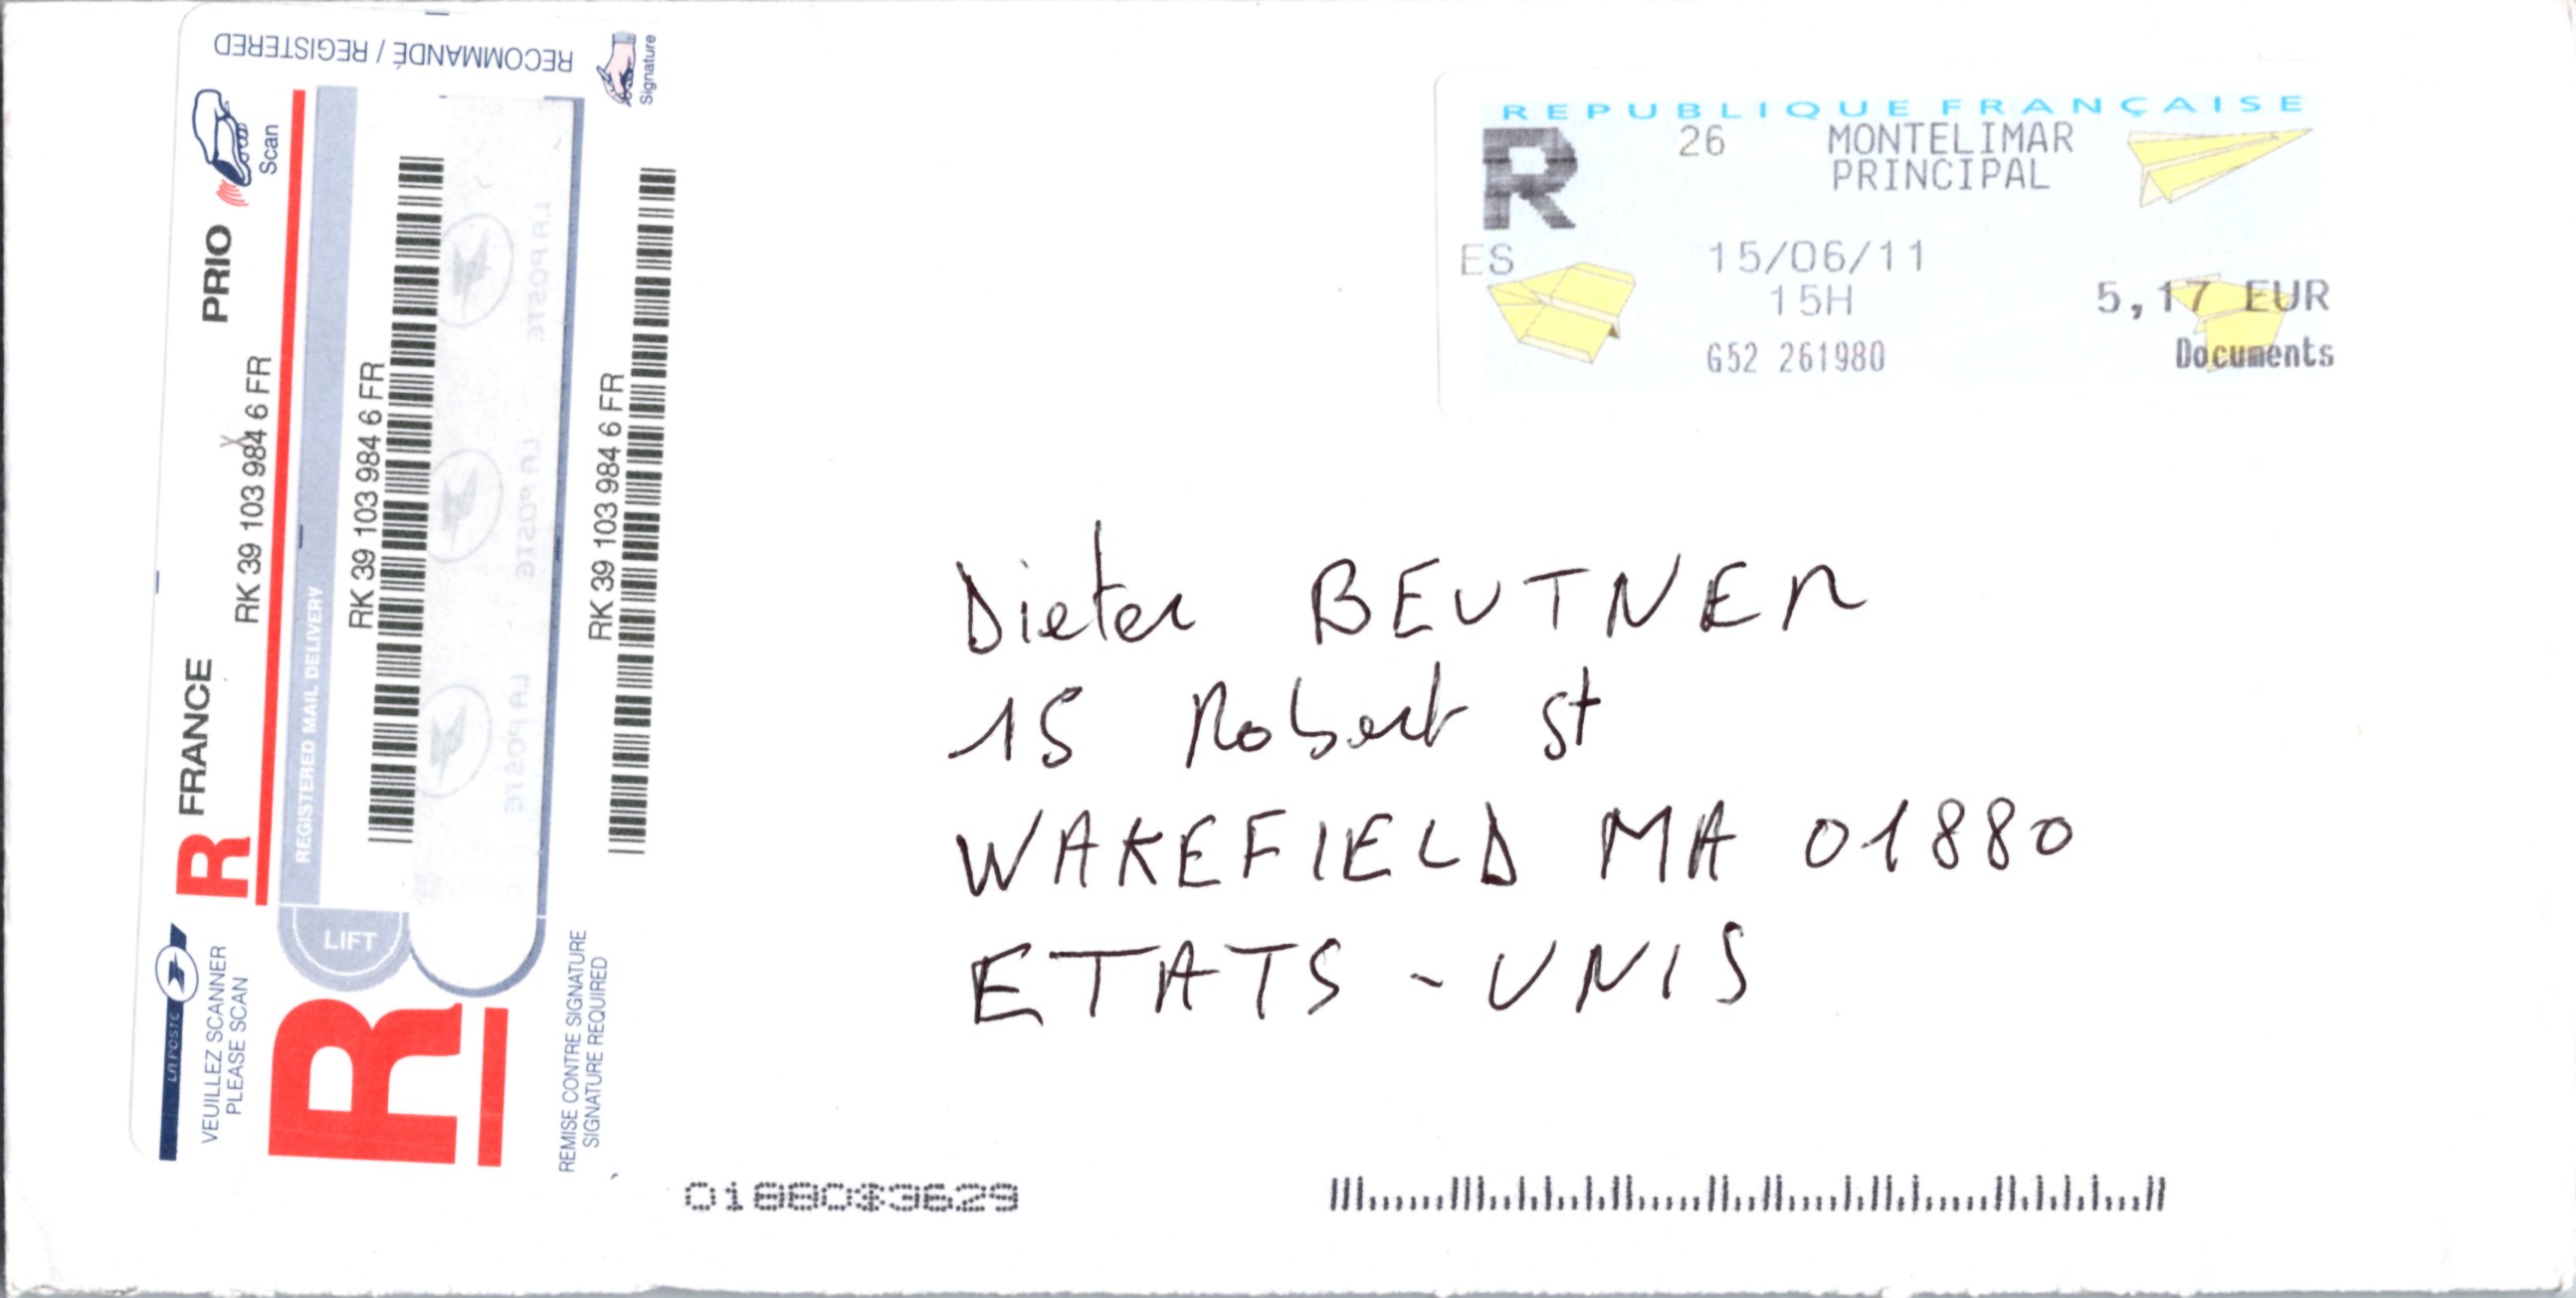 RECOMMANDÉ / REGISTERED
Signature
Scan
R FRANCE PRIO
RK 39 103 984 6 FR
REGISTERED MAIL DELIVERY
RK 39 103 984 6 FR
LA POSTE
LA POSTE
LA POSTE
RK 39 103 984 6 FR
LIFT
LA POSTE
VEUILLEZ SCANNER
PLEASE SCAN
R
REMISE CONTRE SIGNATURE
SIGNATURE REQUIRED
REPUBLIQUE FRANÇAISE
R 26 MONTELIMAR
PRINCIPAL
ES 15/06/11
15H 5,17 EUR
G52 261980 Documents
Dieter BEUTNER
15 Robert St
WAKEFIELD MA 01880
ETATS-UNIS